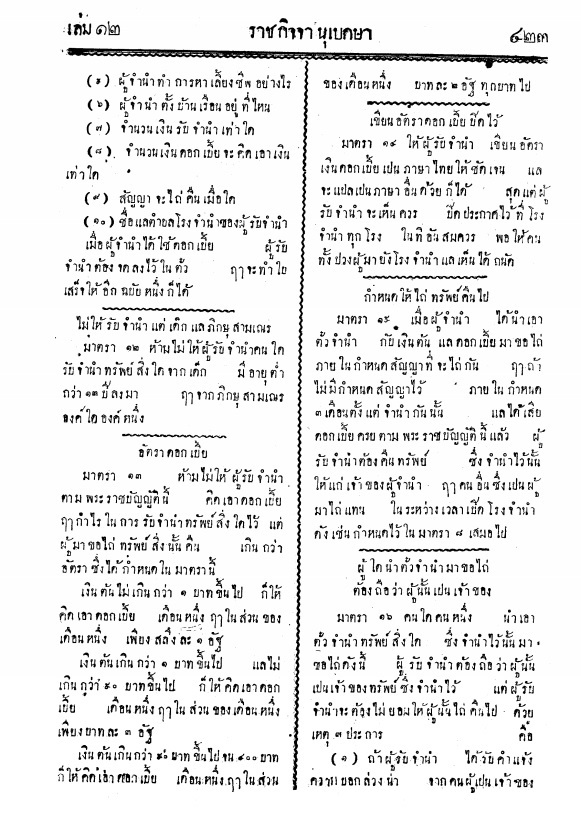 เล่ม ๑๒
ราชกิจจานุเบกษา
๔๒๓
(๕) ผู้จำนำทำ การหาเลี้ยงชีพ อย่างไร
(๖) ผู้จำนำ ตั้ง บ้านเรือน อยู่ ที่ไหน
(๗) จำนวนเงิน รับ จำนำ เท่าใด
(๘) จำนวนเงิน ดอกเบี้ย จะ คิด เอา เงิน
เท่าใด
(๙) สัญญา จะไถ่ คืน เมื่อใด
(๑๐) ชื่อ แลตำบลโรง จำนำของผู้รับจำนำ
เมื่อ ผู้จำนำได้ ใช้ดอกเบี้ย ผู้รับ
จำนำ ต้อง จดลงไว้ ใน ตั๋ว ฤๅ จะทำ ใบ
เสร็จให้ อีก ฉบับ หนึ่ง ก็ได้
ไม่ให้ รับ จำนำ แต่ เด็ก แล ภิกษุ สามเณร
มาตรา ๑๒ ห้ามไม่ให้ ผู้รับ จำนำคน ใด
รับ จำนำ ทรัพย์ สิ่ง ใด จาก เด็ก มี อายุ ต่ำ
กว่า ๑๓ ปี ลงมา ฤๅ จาก ภิกษุ สามเณร
องค์ ใด องค์ หนึ่ง
อัตรา ดอก เบี้ย
มาตรา ๑๓ ห้ามไม่ให้ ผู้รับ จำนำ
ตาม พระราชบัญญัตินี้ คิดเอาดอกเบี้ย
ฤๅกำไร ใน การ รับจำนำทรัพย์ สิ่ง ใดไว้ แต่
ผู้มา ขอไถ่ ทรัพย์ สิ่ง นั้น คืน เกิน กว่า
อัตรา ซึ่งได้ กำหนด ใน มาตรานี้
เงิน ต้นไม่เกิน กว่า ๑ บาท ขึ้นไป ก็ให้
คิด เอา ดอก เบี้ย เดือนหนึ่ง ฤๅ ใน ส่วน ของ
เดือน หนึ่ง เพียง สลึง ละ ๑ อัฐ
เงิน ต้น เกิน กว่า ๑ บาท ขึ้นไป แลไม่
เกิน กว่า ๘๐ บาท ขึ้นไป ก็ให้ คิด เอา ดอก
เบี้ย เดือนหนึ่ง ฤๅ ใน ส่วน ของ เดือน หนึ่ง
เพียงบาท ละ ๓ อัฐ
เงิน ต้น เกิน กว่า ๘๐ บาท ขึ้นไป จน ๔๐๐ บาท
ก็ให้ คิด เอา ดอก เบี้ย เดือนหนึ่ง ฤๅ ใน ส่วน
ของ เดือน หนึ่ง บาท ละ ๒ อัฐ ทุกบาท ไป
เขียน อัตรา ดอก เบี้ย ปิดไว้
มาตรา ๑๔ ให้ ผู้รับ จำนำ เขียน อัตรา
เงินดอกเบี้ย เปน ภาษา ไทยให้ ชัดเจน แล
จะแปลเปน ภาษา อื่น ด้วย ก็ได้ สุดแต่ ผู้
รับ จำนำ จะเห็น ควร ปิด ประกาศไว้ ที่ โรง
จำนำ ทุก โรง ในที่ อันสมควร พอ ให้ คน
ทั้งปวงผู้มา ยัง โรง จำนำ แลเห็นได้ ถนัด
กำหนด ให้ ไถ่ ทรัพย์ คืนไป
มาตรา ๑๕ เมื่อ ผู้จำนำ ได้นำ เอา
ตั๋วจำนำ กับเงินต้น แลดอกเบี้ยมาขอไถ่
ภายใน กำหนด สัญญา ที่ จะไถ่ กัน ฤๅ ถ้า
ไม่มี กำหนด สัญญาไว้ ภายใน กำหนด
๓ เดือนตั้ง แต่ จำนำ กัน นั้น แลได้ เสีย
ดอกเบี้ย ครบ ตาม พระราชบัญญัติ นี้ แล้ว ผู้
รับ จำนำต้อง คืน ทรัพย์ ซึ่ง จำนำไว้นั้น
ให้แก่ เจ้า ของผู้จำนำ ฤๅ คน อื่น ซึ่งเปน ผู้
มาไถ่ แทน ใน ระหว่าง เวลา เปิด โรง จำนำ
ดังเช่น กำหนดไว้ ใน มาตรา ๘ เสมอไป
ผู้ ใด นำตั๋วจำนำมาขอไถ่
ต้องถือว่า ผู้นั้นเปน เจ้าของ
มาตรา ๑๖ คนใดคนหนึ่ง นำเอา
ตั๋ว จำนำ ทรัพย์ สิ่ง ใด ซึ่ง จำนำไว้นั้นมา
ขอไถ่ ดังนี้ ผู้ รับ จำนำ ต้องถือ ว่าผู้นั้น
เปนเจ้าของทรัพย์ ซึ่ง จำนำไว้ แต่ ผู้รับ
จำนำจะต้องไม่ยอมให้ผู้นั้นไถ่คืนไป ด้วย
เหตุ ๓ ประการ คือ
(๑) ถ้าผู้รับจำนำ ได้รับ คำแจ้ง
ความบอกล่วงน่า จากคนผู้เปนเจ้าของ